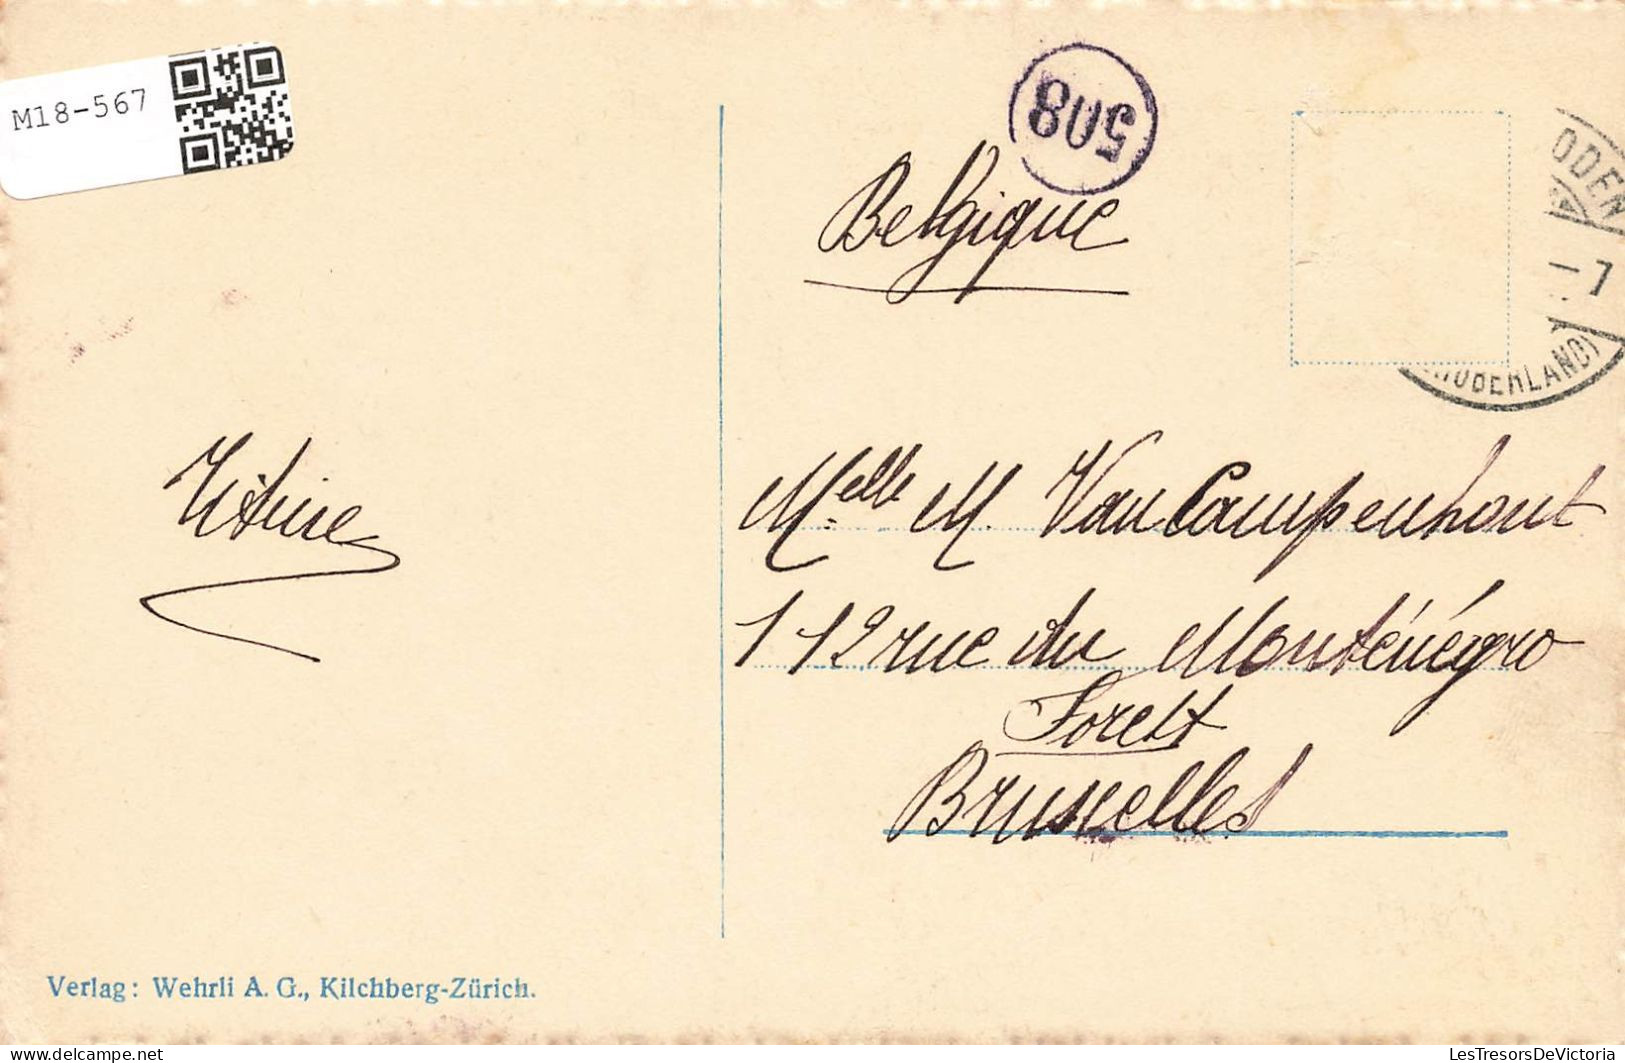 M18-567
508
Belgique
ODEN
-7
OBERLAND)
Melle M. Van Campenhout
112 rue du Monténégro
Forest
Bruxelles
Verlag: Wehrli A. G., Kilchberg-Zürich.
www.delcampe.net
LesTresorsDeVictoria